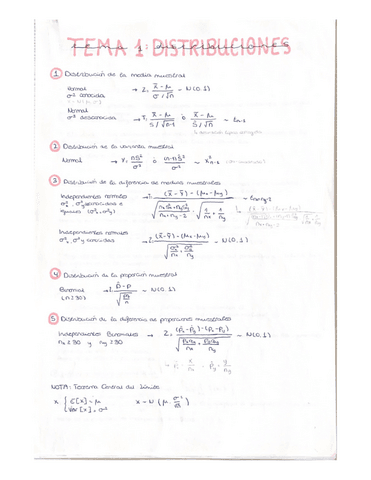 TEMA 1 DISTRIBUCIONES
① Distribución de la media muestral
Normal σ² conocida → Z: (x̄ - μ) / (σ/√n) ~ N(0,1)
Normal σ² desconocida → T: (x̄ - μ) / (S/√n-1) ó (x̄ - μ) / (S/√n) ~ tn-1
② Distribución de la varianza muestral
Normal → X: nS² / σ² ó (n-1)S² / σ² ~ X²n-1
③ Distribución de la diferencia de medias muestrales
Independientes normales
σ²x, σ²y desconocidas e iguales (σ²x, σ²y)
Independientes normales
σ²x, σ²y conocida → Z: (x̄ - ȳ) - (μx - μy) / √(σ²x/nx + σ²y/ny) ~ N(0,1)
④ Distribución de la proporción muestral
Binomial (n≥30) → Z: (p̂ - p) / √(pq/n) ~ N(0,1)
⑤ Distribución de la diferencia de proporciones muestrales
Independientes Binomiales
nx ≥ 30 y ny ≥ 30 → Z: (p̂x - p̂y) - (px - py) / √(pxqx/nx + pyqy/ny) ~ N(0,1)
NOTA: Teorema Central del Límite
x { E[x] = μ
Var[x] = σ²